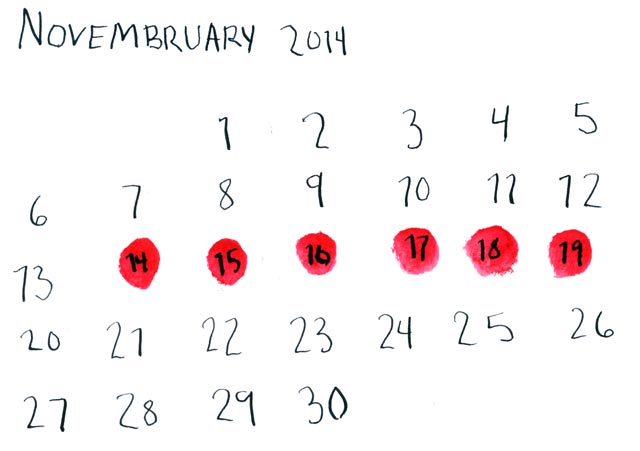 NOVEMBRUARY 2014
1 2 3 4 5
6 7 8 9 10 11 12
13 14 15 16 17 18 19
20 21 22 23 24 25 26
27 28 29 30